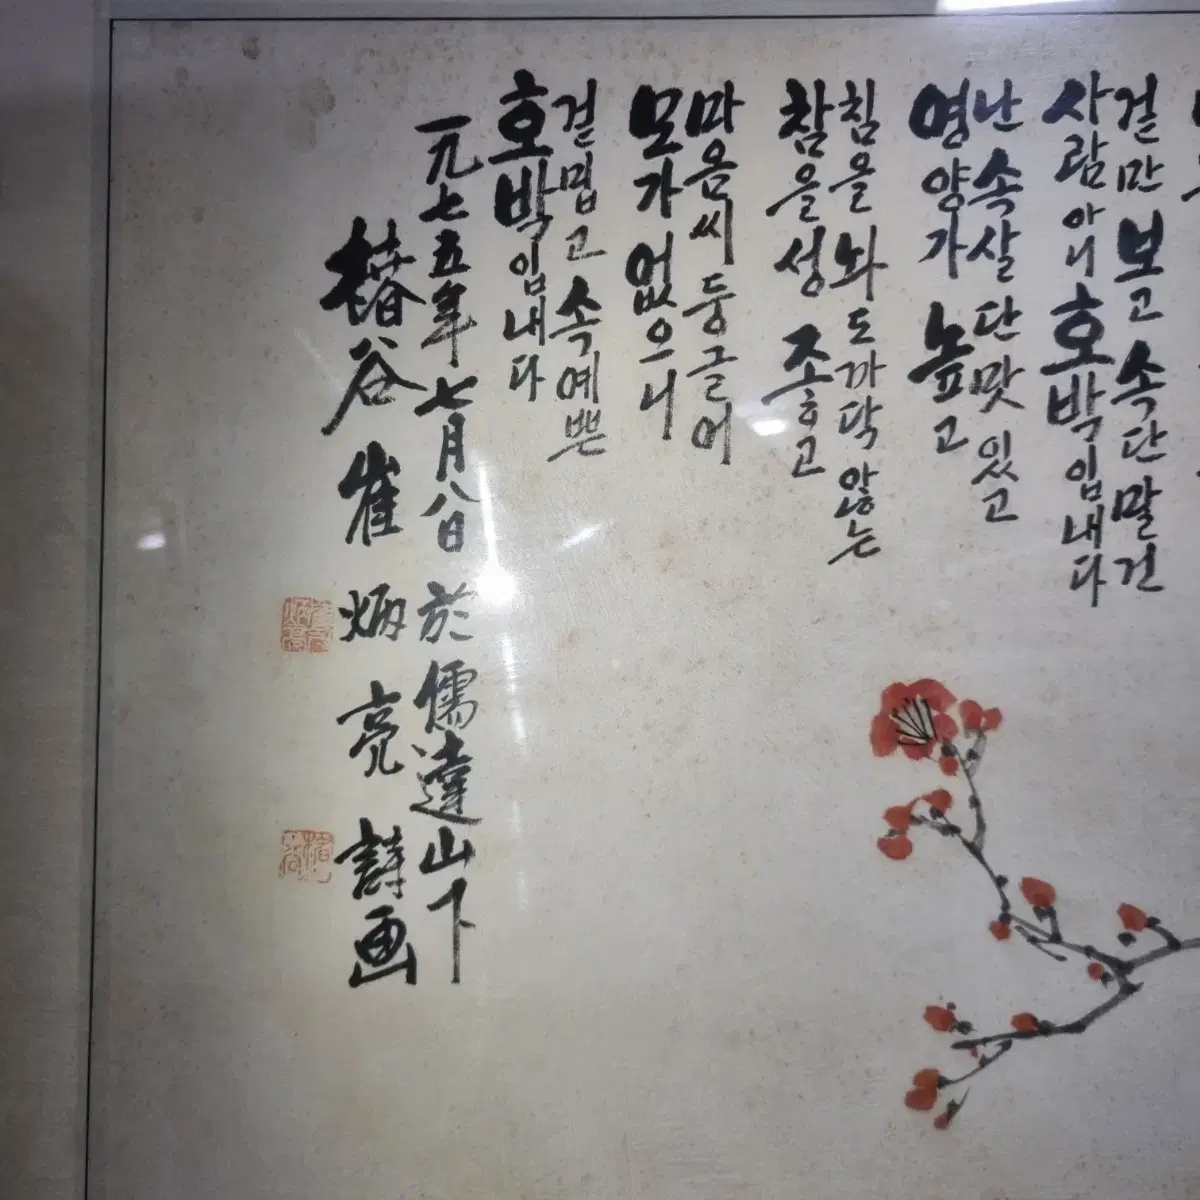 겉만 보고 속단 말건
사람아니 호박임내다
난 속살 단맛 있고
영양가 높고
침을 놔도 까닥 않는
참을성 좋고
마음씨 둥글어
모가 없으니
겉밉고 속예쁜
호박임내다
一九七五年七月八日 於儒達山下
椿谷 崔炳亮 詩画